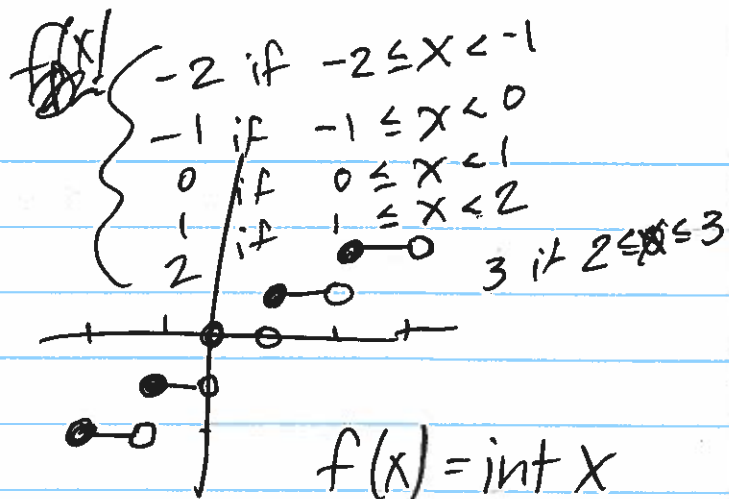 f(x)
-2 if -2 ≤ x < -1
-1 if -1 ≤ x < 0
0 if 0 ≤ x < 1
1 if 1 ≤ x < 2
2
3 if 2 ≤ x ≤ 3
f(x) = int x